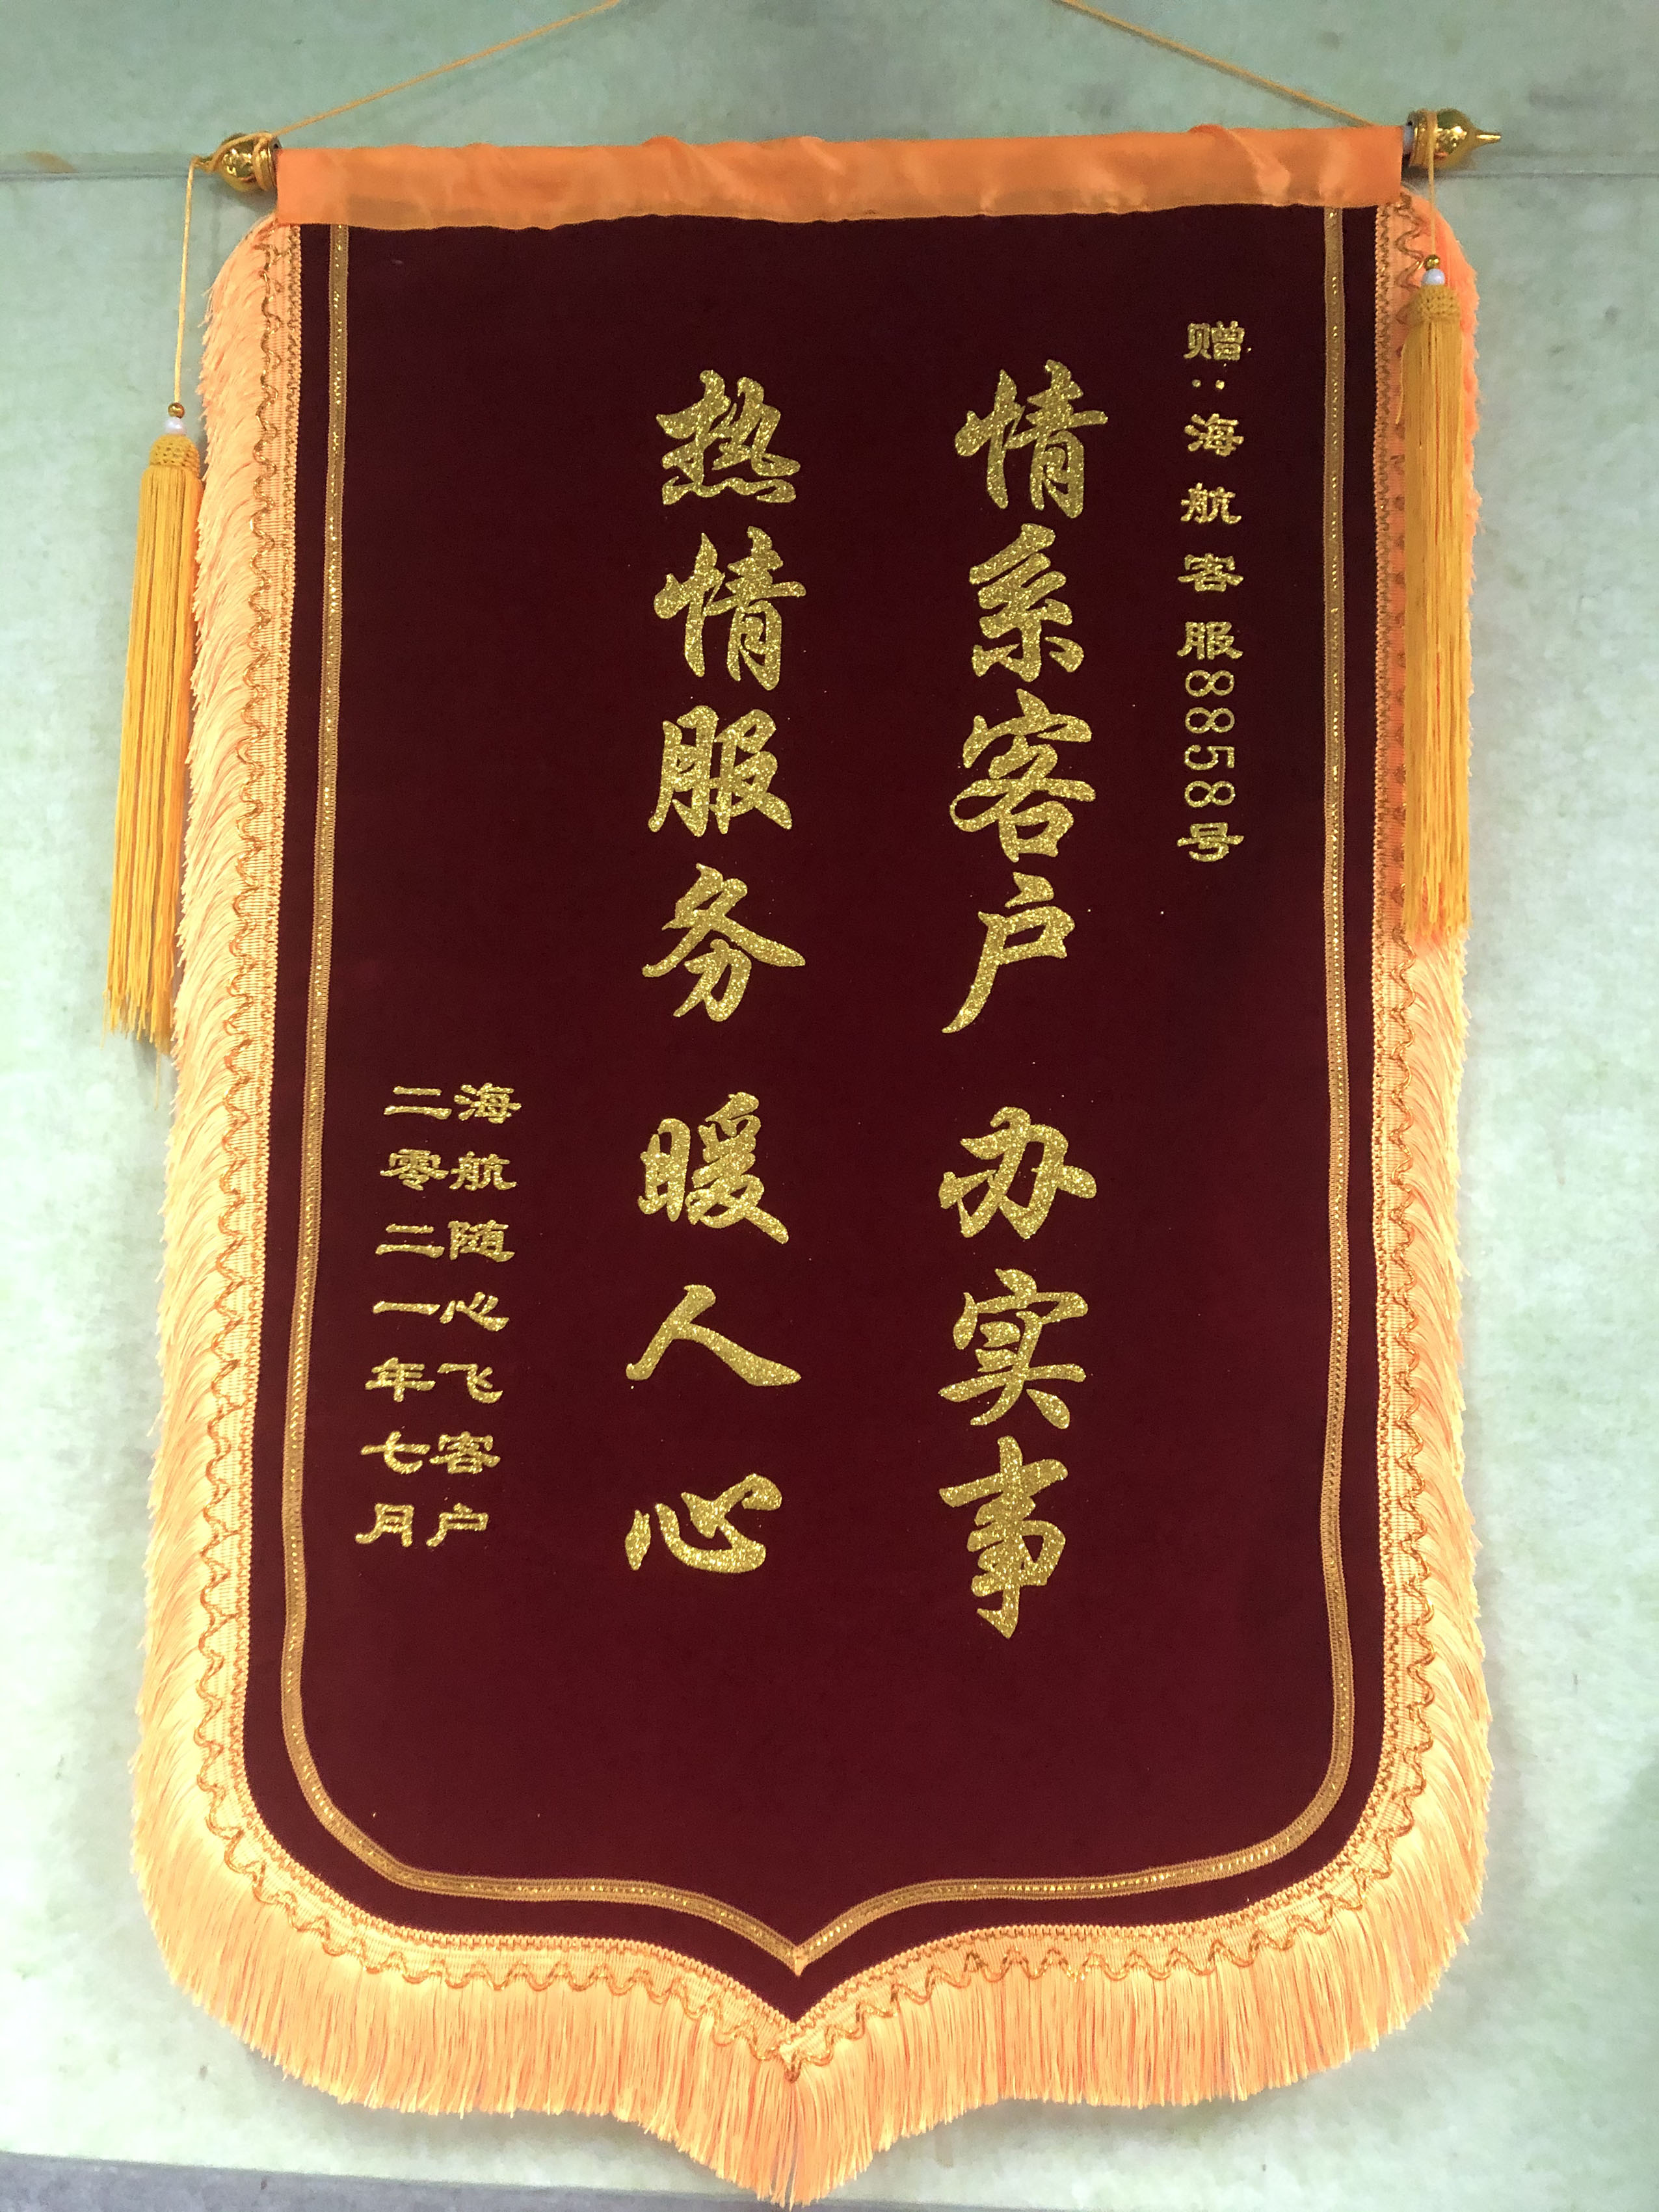 赠：海航客服8858号
情系客户 办实事
热情服务 暖人心
海航随心飞客户
二零二一年七月